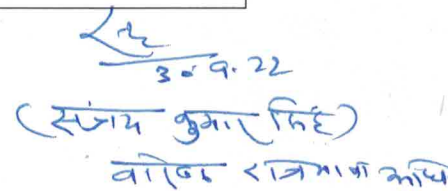 30.9.22
(संजय कुमार सिंह)
वरिष्ठ राजभाषा अधि